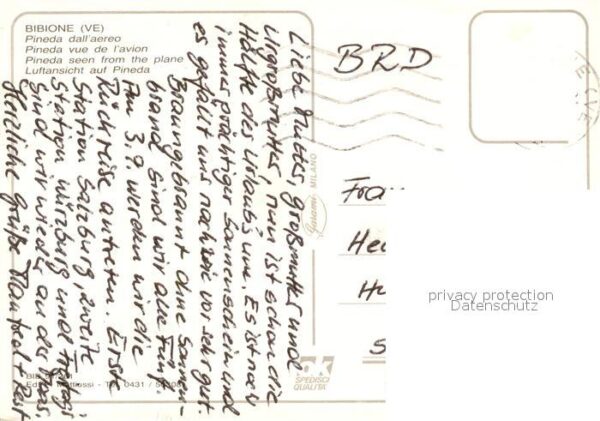 BIBIONE (VE)
Pineda dall'aereo
Pineda vue de l'avion
Pineda seen from the plane
Luftansicht auf Pineda
Liebe Mutter, Großmutter und
Urgroßmutter, nun ist schon die
Hälfte des Urlaubs um. Es ist noch
immer prächtiger Sonnenschein und
es gefällt uns nach wie vor sehr gut.
Braungebrannt ohne Sonnen-
brand sind wir alle Fünf.
Am 3.9. werden wir die
Rückreise antreten. Erste
Station Salzburg, zweite
Station Würzburg und
sind wir wieder an der
Herzliche Grüße Manfred + Rest
BRD
Fra
He
Hu
S
MILANO
privacy protection
Datenschutz
SPEDISCI
QUALITÀ
BIB
0431 /